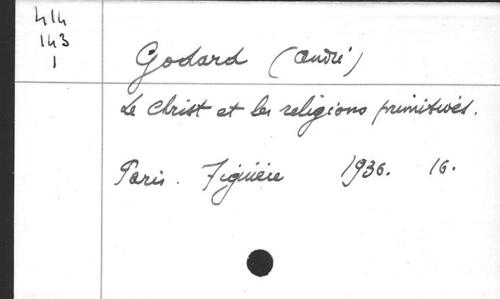 414
143
1
Godard (André)
Le Christ et les religions primitives.
Paris. Figuière 1936. 16.